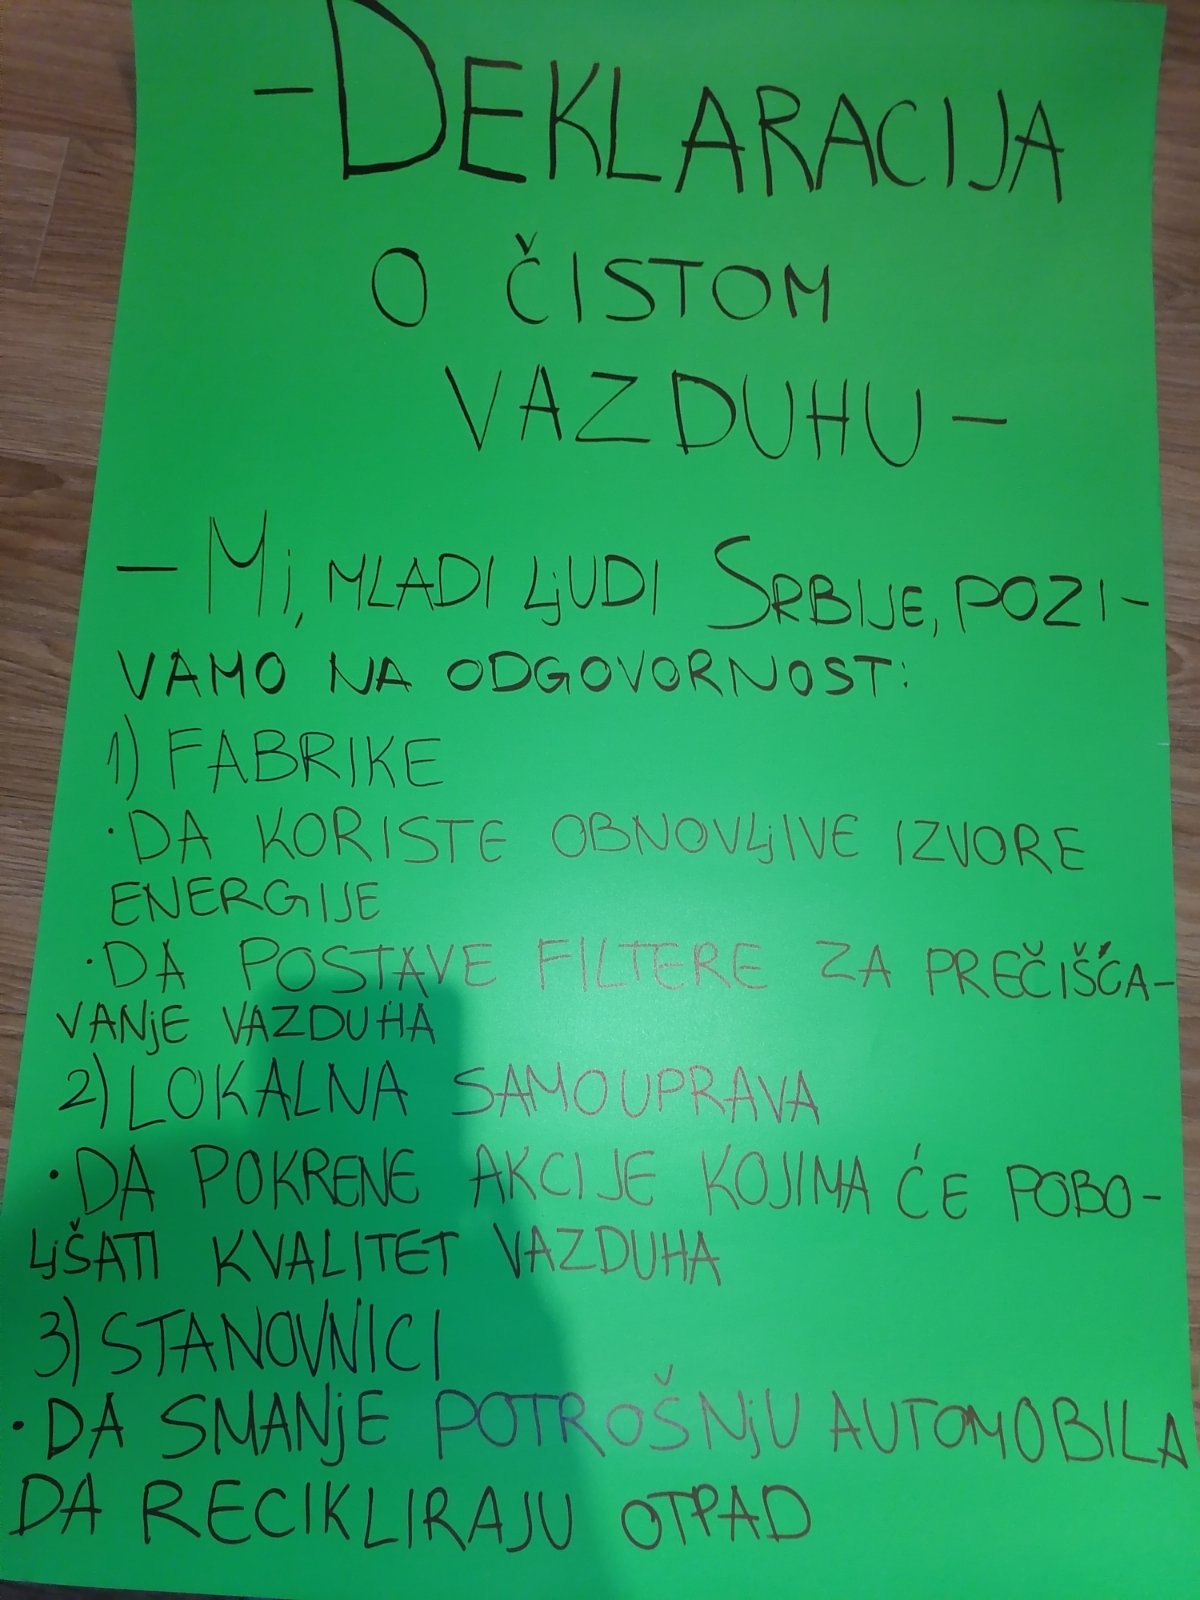 -DEKLARACIJA
O ČISTOM
VAZDUHU-
- Mi, MLADI LjUDI SRBIJE, POZI-
VAMO NA ODGOVORNOST:
1) FABRIKE
·DA KORISTE OBNOVLjIVE IZVORE
ENERGIJE
·DA POSTAVE FILTERE ZA PREČIŠĆA-
VANjE VAZDUHA
2) LOKALNA SAMOUPRAVA
·DA POKRENE AKCIJE KOJIMA ĆE POBO-
LjŠATI KVALITET VAZDUHA
3) STANOVNICI
·DA SMANjE POTROŠNjU AUTOMOBILA
DA RECIKLIRAJU OTPAD